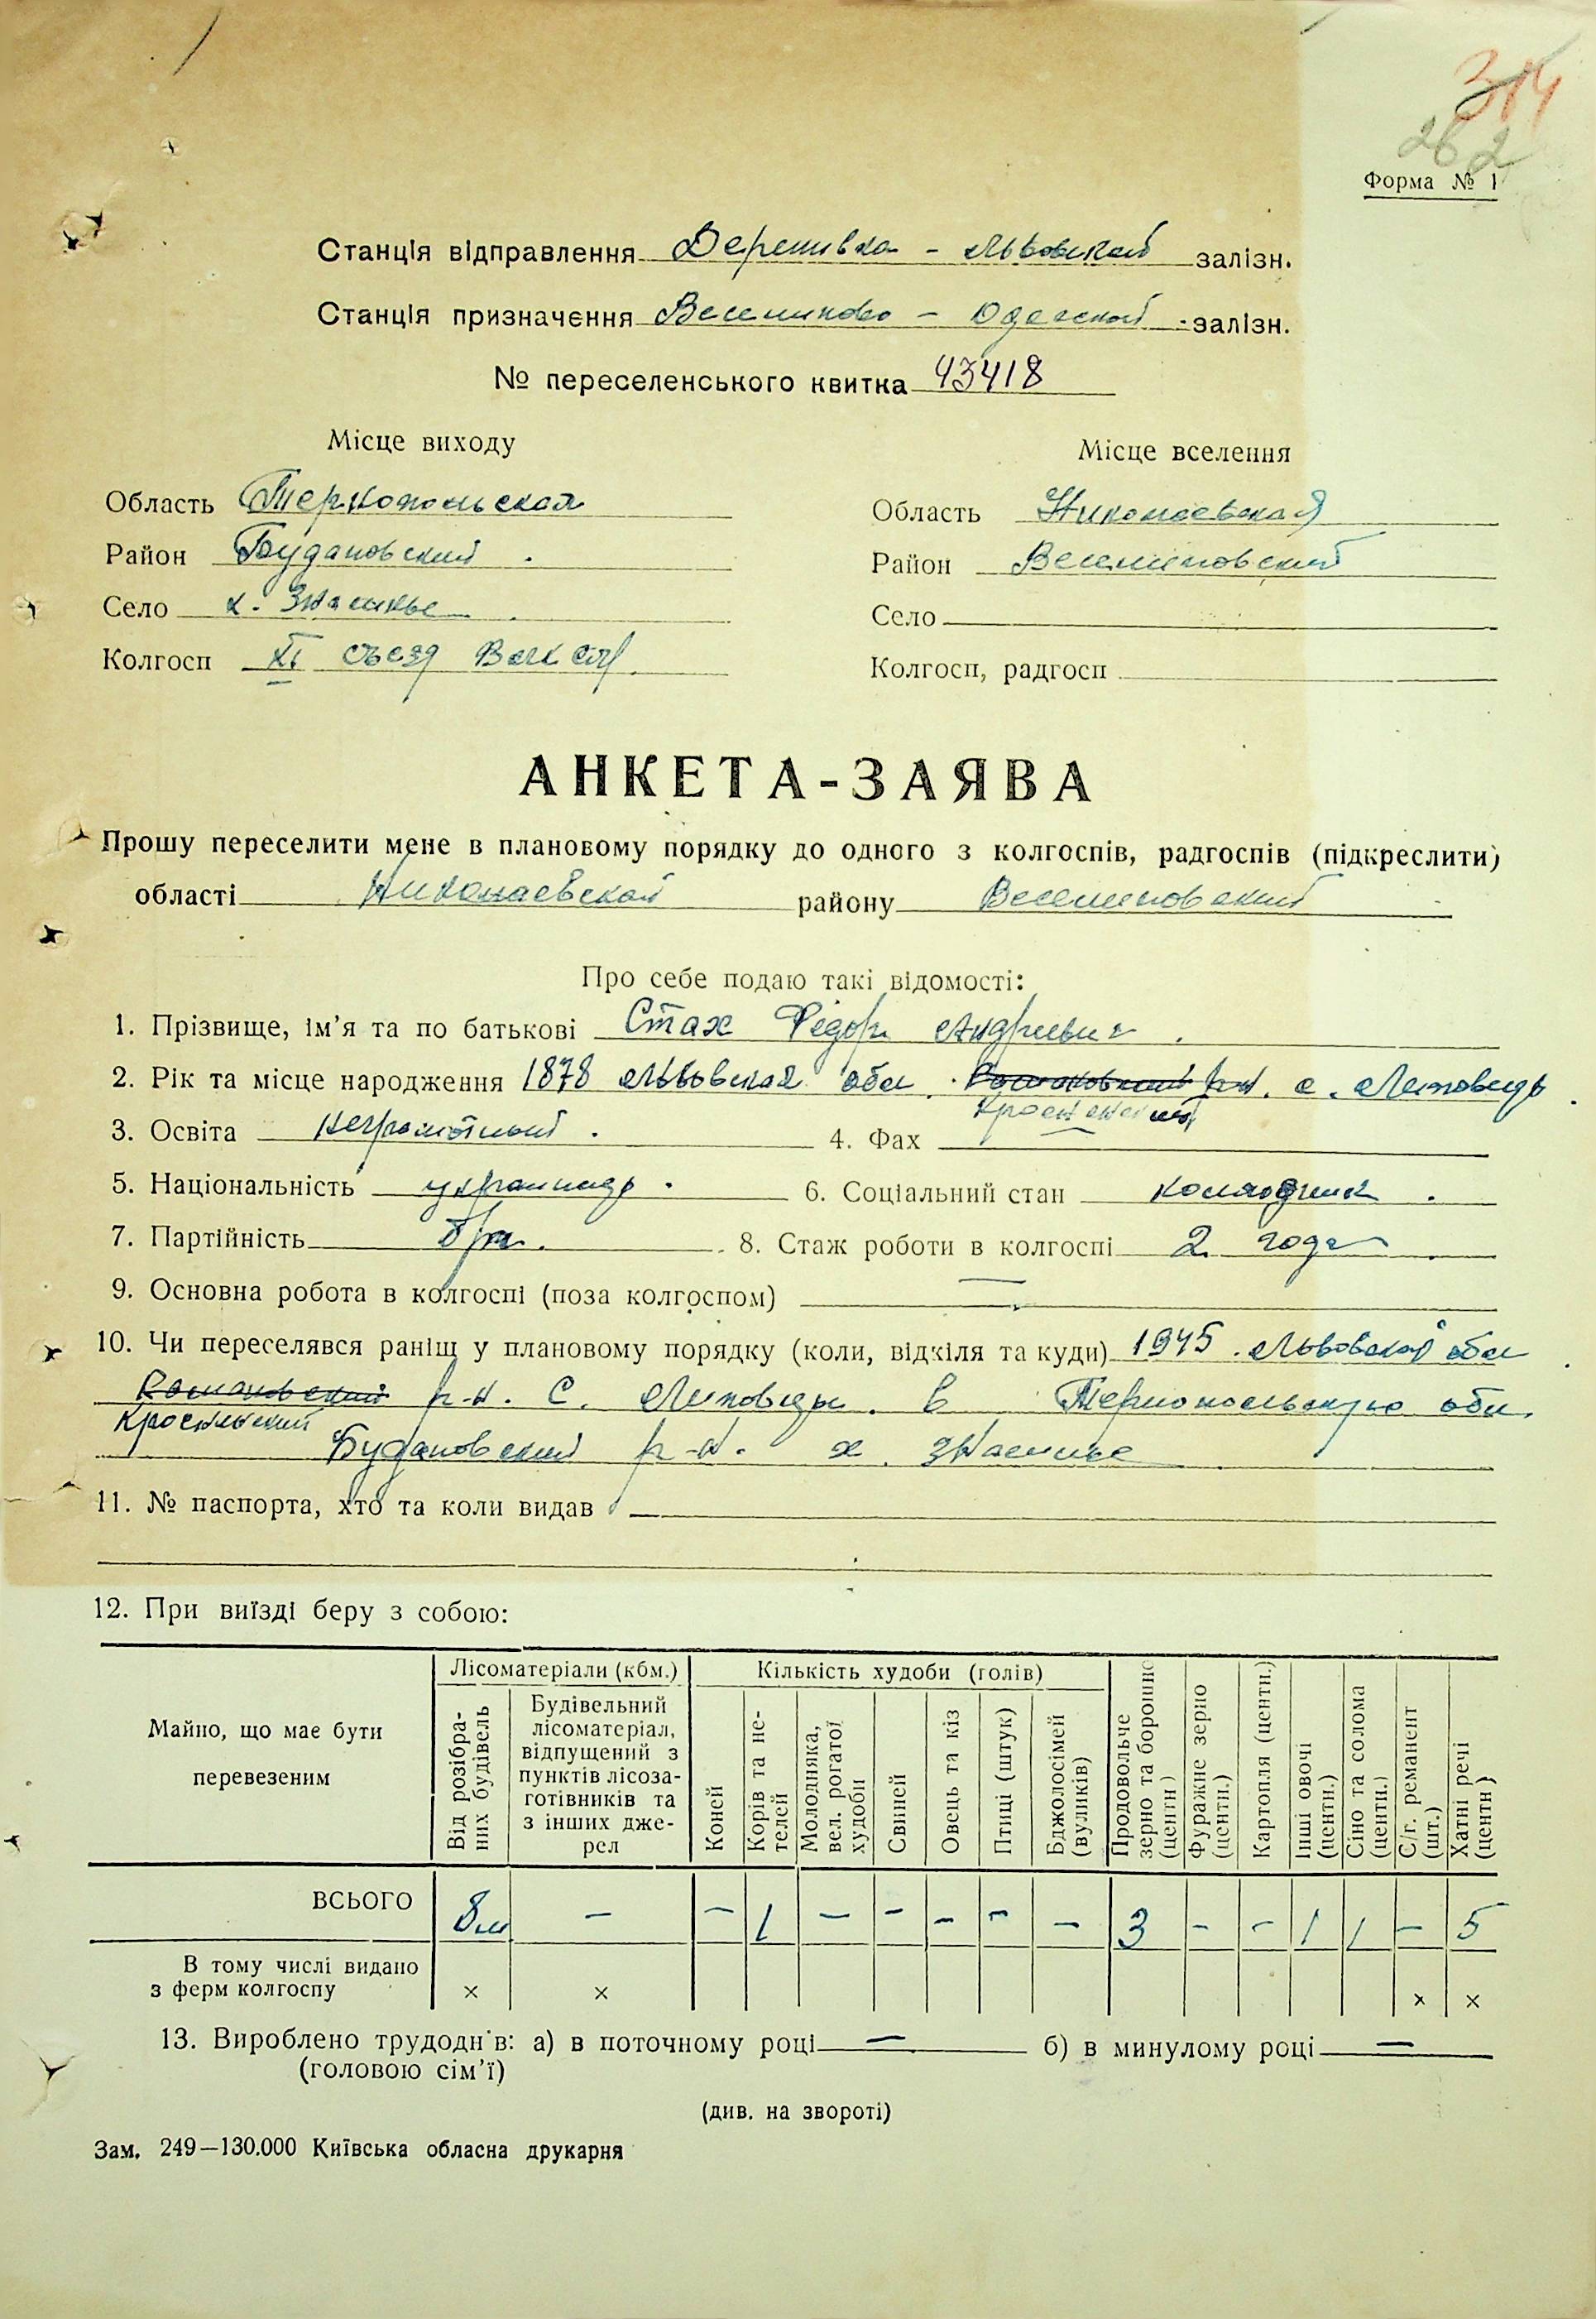 314
262
Форма № 1
Станція відправлення Деренивка - Львовской залізн.
Станція призначення Веселиново - Одесской залізн.
№ переселенського квитка 43418
Місце виходу
Місце вселення
Область Тернопольская
Область Николаевская
Район Будановский
Район Веселиновский
Село х.
Село
Колгосп XI съезд
Колгосп, радгосп
АНКЕТА-ЗАЯВА
Прошу переселити мене в плановому порядку до одного з колгоспів, радгоспів (підкреслити)
області Николаевской району Веселиновский
Про себе подаю такі відомості:
1. Прізвище, ім'я та по батькові Стах Федор Андреевич
2. Рік та місце народження 1878 Львовская обл. р-н. с. Липовець
3. Освіта неграмотный. 4. Фах
5. Національність украинець. 6. Соціальний стан колхозник.
7. Партійність б/п. 8. Стаж роботи в колгоспі 2 года
9. Основна робота в колгоспі (поза колгоспом) —
10. Чи переселявся раніш у плановому порядку (коли, відкіля та куди) 1945 Львовской обл
р-н. с. Липовцы. в Тернопольскую обл.
Кросненский
Будановский р-н. х.
11. № паспорта, хто та коли видав
12. При виїзді беру з собою:
Майно, що має бути перевезеним
Лісоматеріали (кбм.)
Кількість худоби (голів)
Від розібраних будівель
Будівельний лісоматеріал, відпущений з пунктів лісозаготівників та з інших джерел
Коней
Корів та нетелей
Молодняка, вел. рогатої худоби
Свиней
Овець та кіз
Птиці (штук)
Бджолосімей (вуликів)
Продовольче зерно та борошно (центн)
Фуражне зерно (центн.)
Картопля (центн.)
Інші овочі (центн.)
Сіно та солома (центн.)
С/г. реманент (шт.)
Хатні речі (центн)
ВСЬОГО 8м — — 1 — — — — — 3 - - 1 1 — 5
В тому числі видано
з ферм колгоспу × × × ×
13. Вироблено трудодн'в: а) в поточному році — б) в минулому році —
(головою сім'ї)
(див. на звороті)
Зам. 249—130.000 Київська обласна друкарня